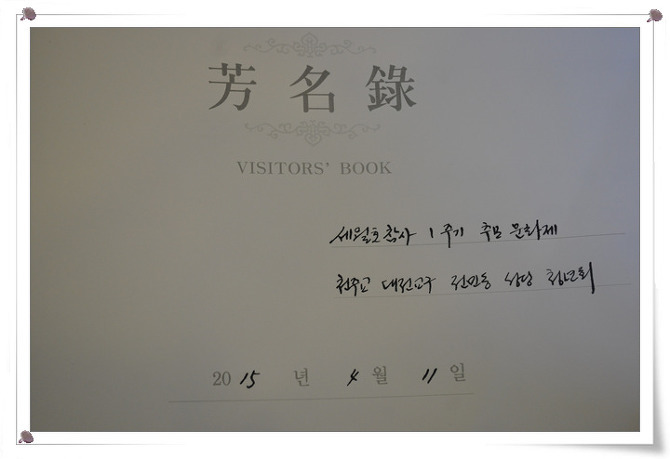 芳名錄
VISITORS' BOOK
세월호참사 1주기 추모 문화제
천주교 대전교구 전민동 성당 청년회
2015년 4월 11일